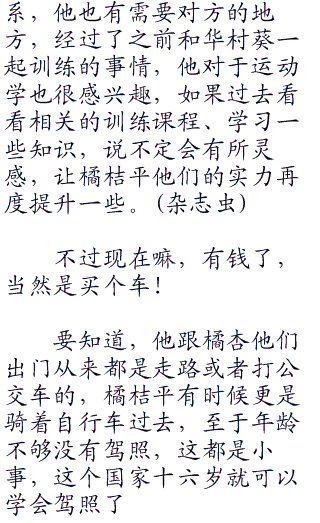 系，他也有需要对方的地
方，经过了之前和华村葵一
起训练的事情，他对于运动
学也很感兴趣，如果过去看
看相关的训练课程、学习一
些知识，说不定会有所灵
感，让橘桔平他们的实力再
度提升一些。(杂志虫)
不过现在嘛，有钱了，
当然是买个车！
要知道，他跟橘杏他们
出门从来都是走路或者打公
交车的，橘桔平有时候更是
骑着自行车过去，至于年龄
不够没有驾照，这都是小
事，这个国家十六岁就可以
学会驾照了